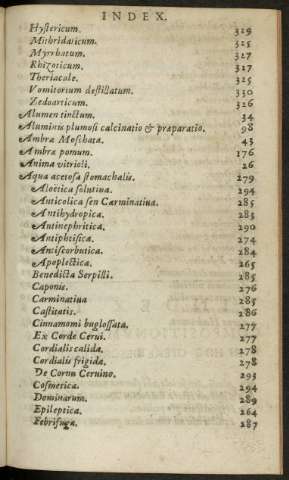 INDEX.
Hystericum. 329
Mithridaticum. 325
Myrrhatum. 327
Rhizoticum. 317
Theriacale. 325
Vomitorium destillatum. 330
Zedoarricum. 326
Alumen tinctum. 34
Aluminis plumosi calcinatio & præparatio. 98
Ambræ Moschata. 43
Ambræ pomum. 176
Anima vitrioli. 26
Aqua acetosa stomachalis. 279
Aloetica solutiua. 294
Anticolica seu Carminatiua. 285
Antihydropica. 283
Antinephritica. 290
Antiphtisica. 274
Antiscorbutica. 284
Apoplectica. 265
Benedicta Serpilli. 285
Caponis. 276
Carminatiua 285
Castitatis. 286
Cinnamomi buglossata. 277
Ex Corde Cerui. 277
Cordialis calida. 278
Cordialis frigida. 278
De Cornu Ceruino. 293
Cosmetica. 294
Dominarum. 289
Epileptica. 264
Febrifuga. 287